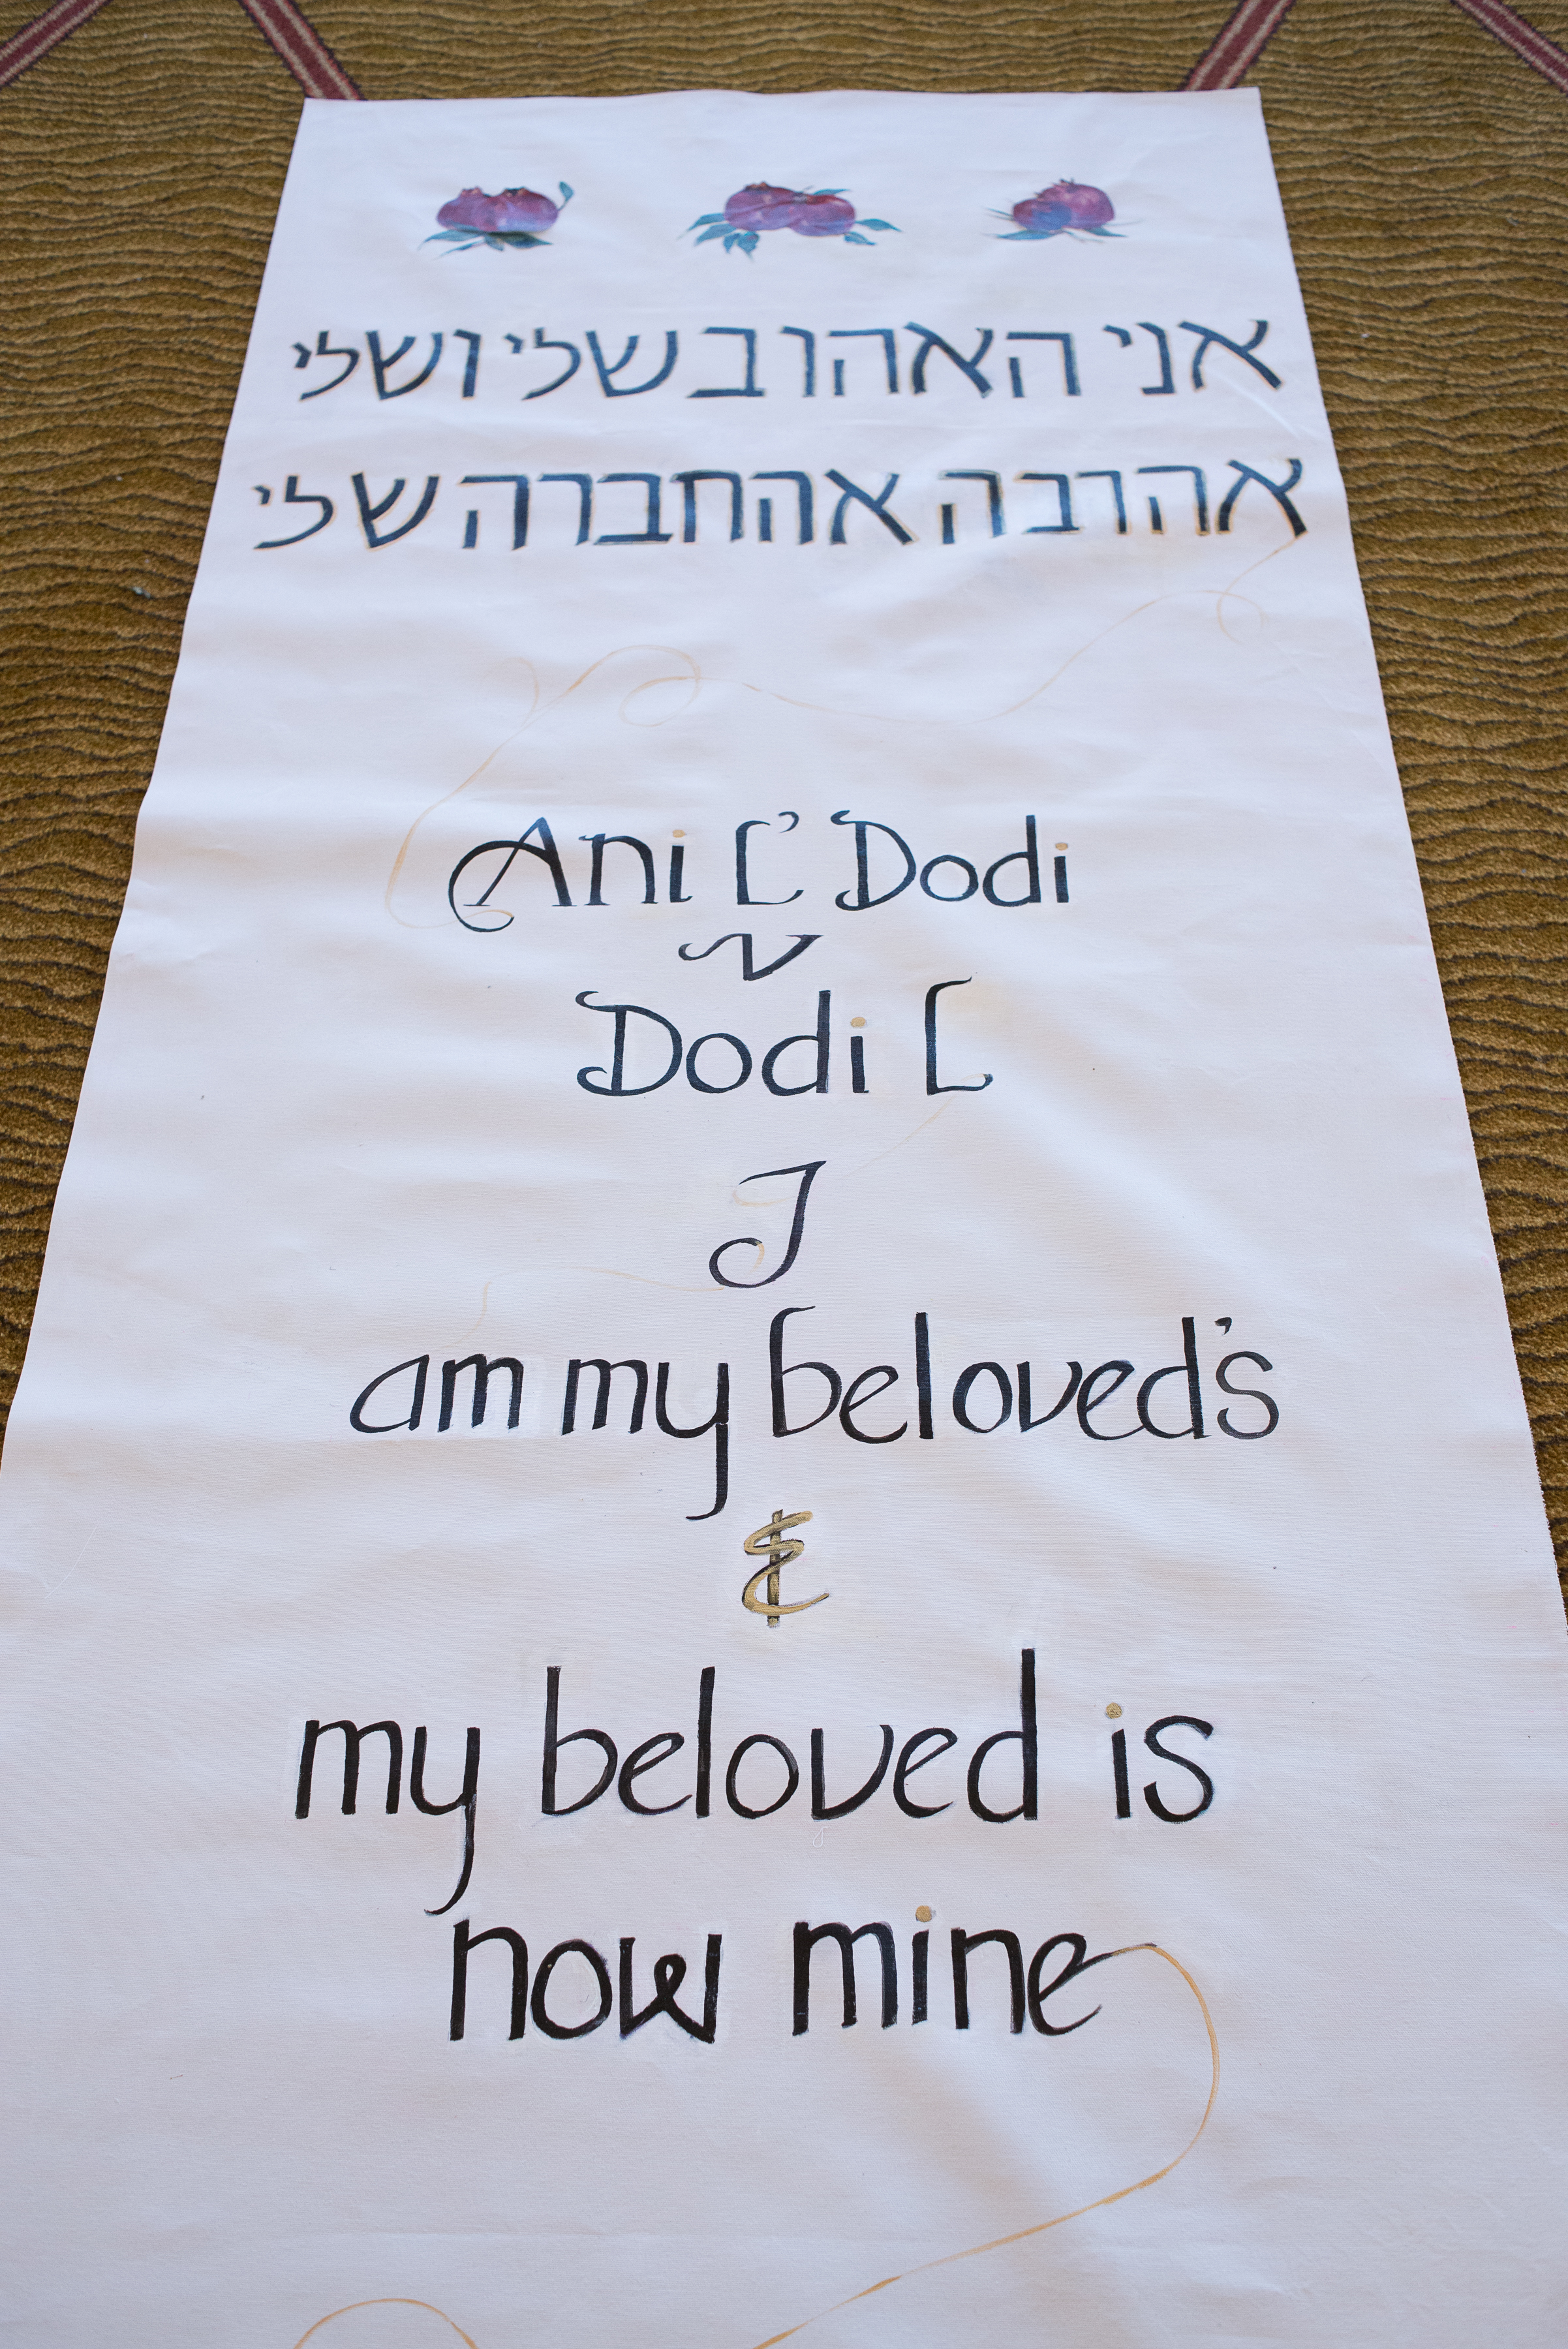 אני האהוב שלי ושלי
אהובה אהחברה שלי
Ani L' Dodi
V
Dodi L
I
am my beloved's
&
my beloved is
now mine